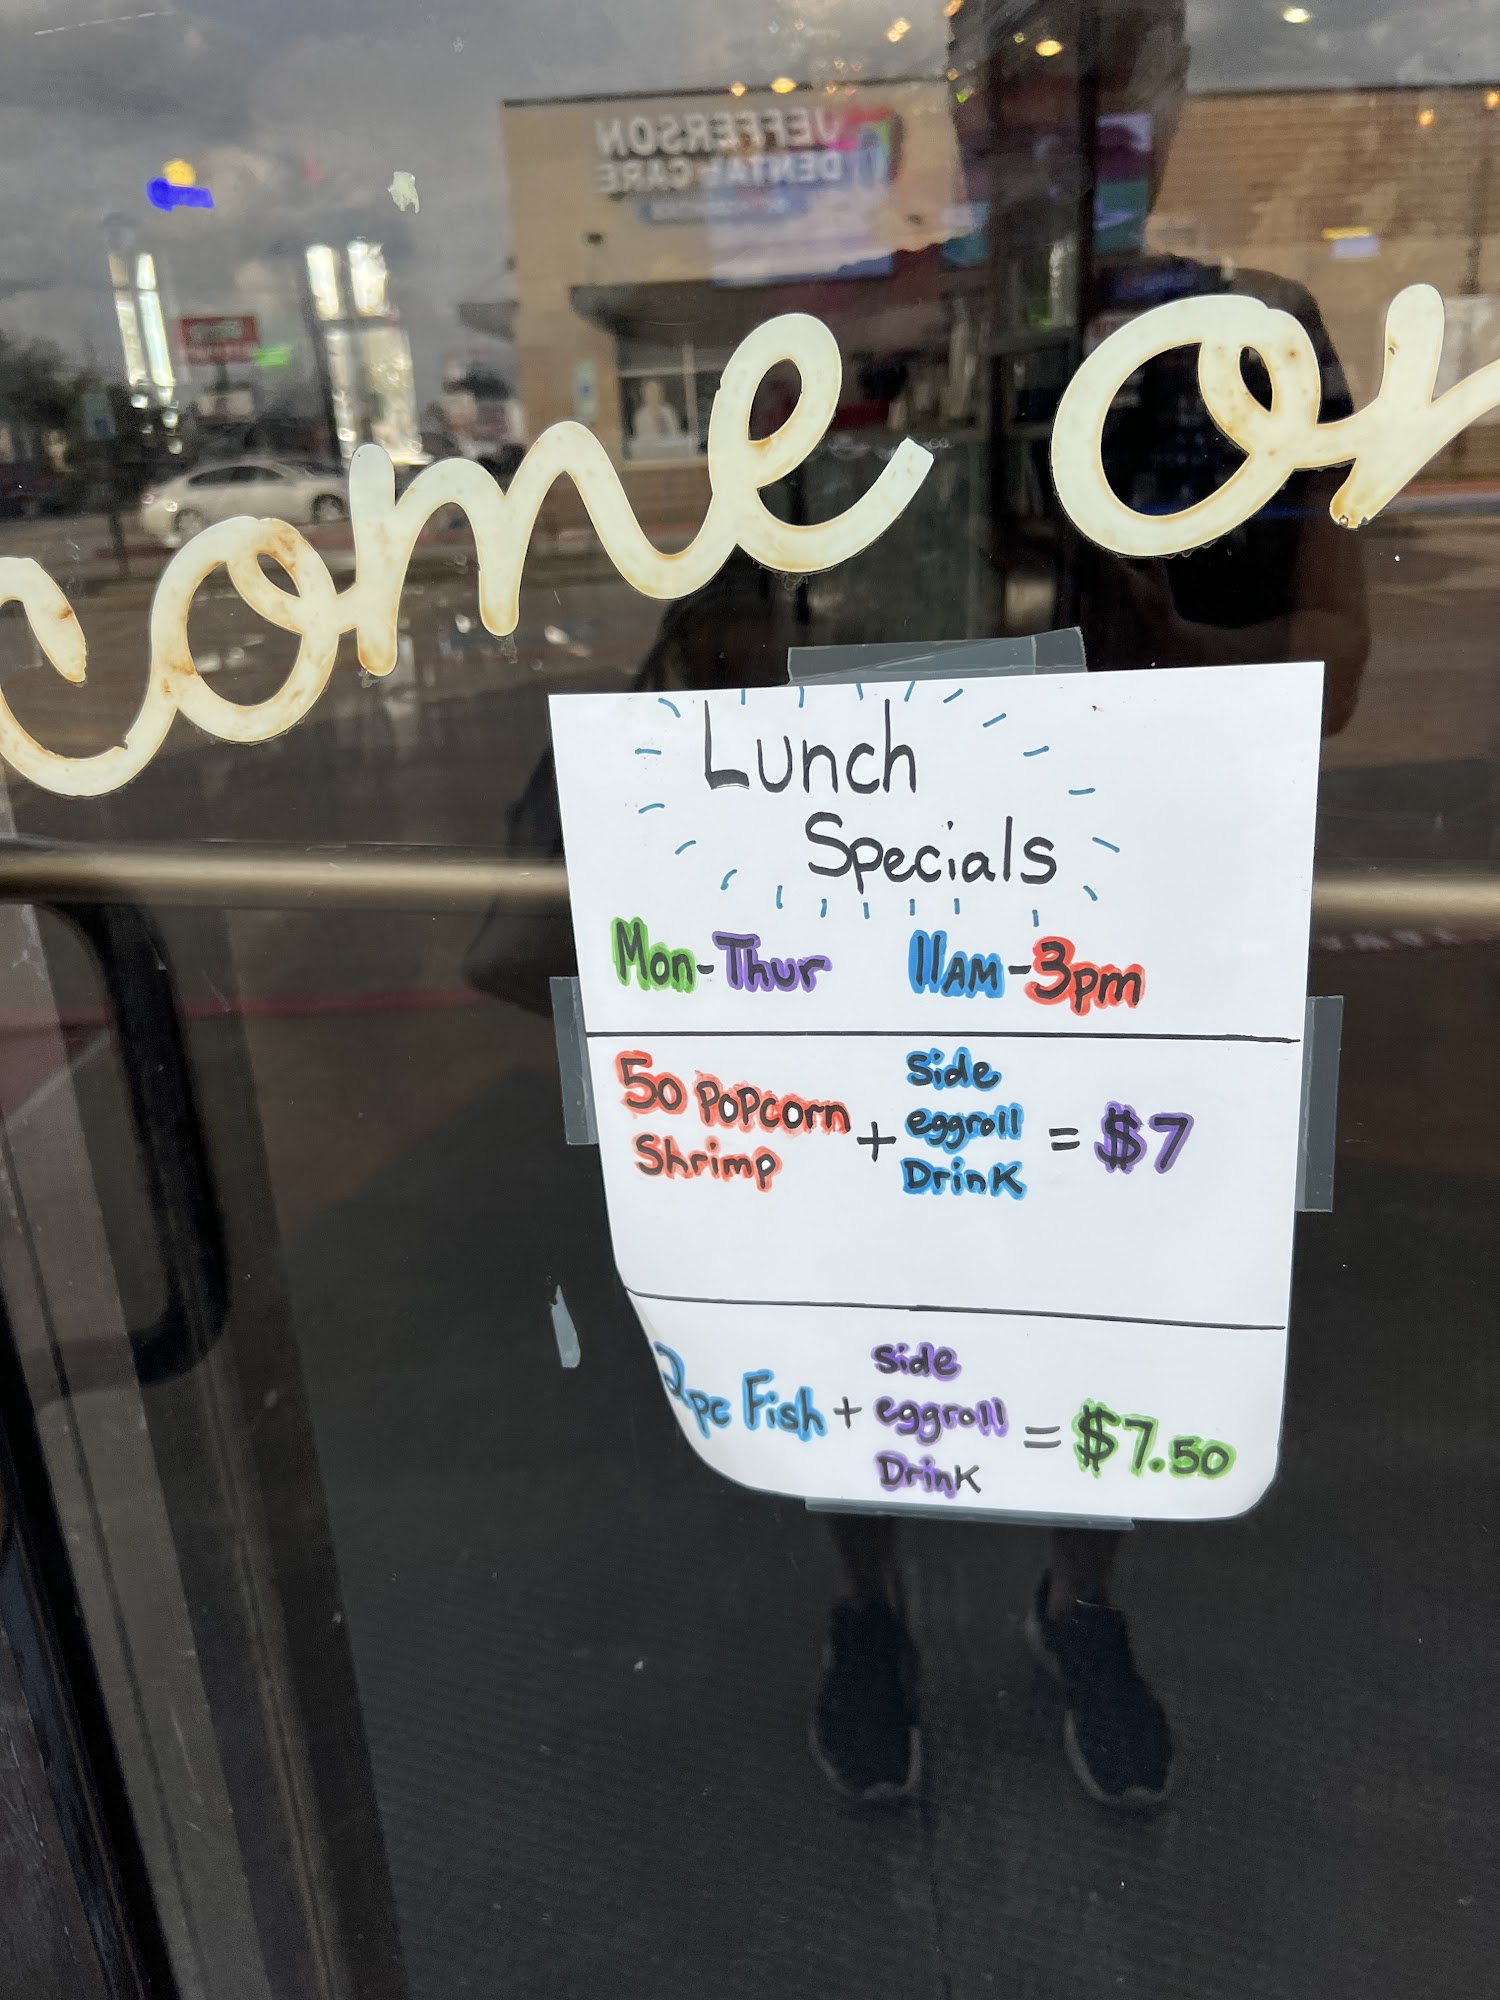 JEFFERSON
DENTAL CARE
come on
Lunch
Specials
Mon-Thur 11AM-3pm
50 Popcorn Shrimp + Side eggroll Drink = $7
2pc Fish + Side eggroll Drink = $7.50